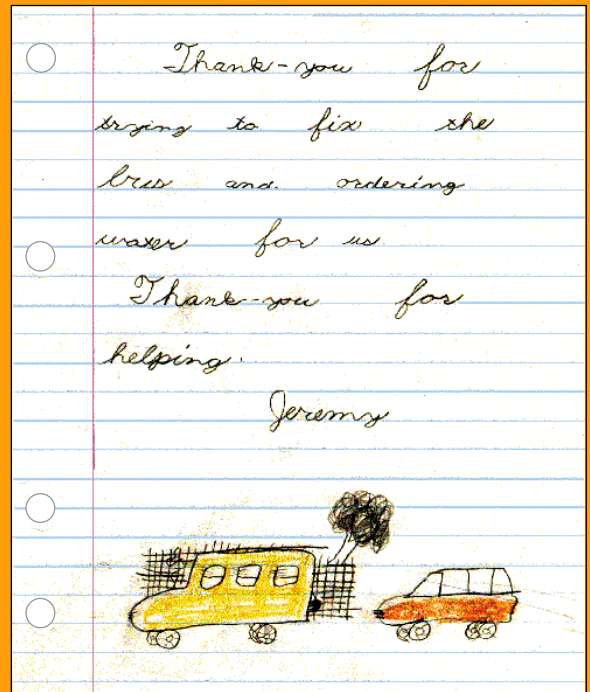 Thank-you for
trying to fix the
bus and. ordering
water for us
Thank-you for
helping.
Jeremy